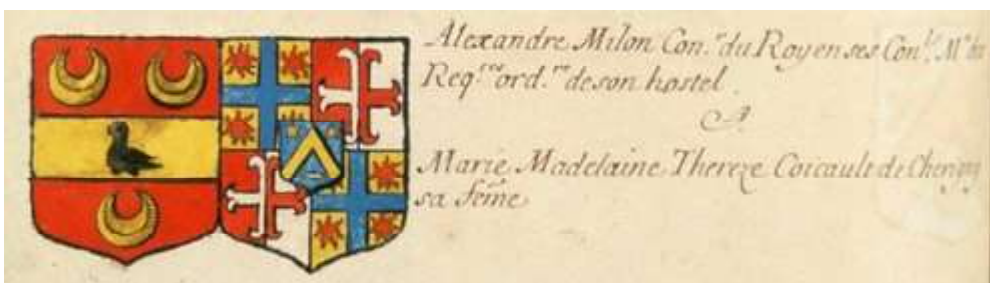 Alexandre Milon Con.er du Roy en ses Con.ls M.e des
Req.tes ord.re de son hostel
&
Marie Madelaine Thereze Coicault de Cherigny
sa feme